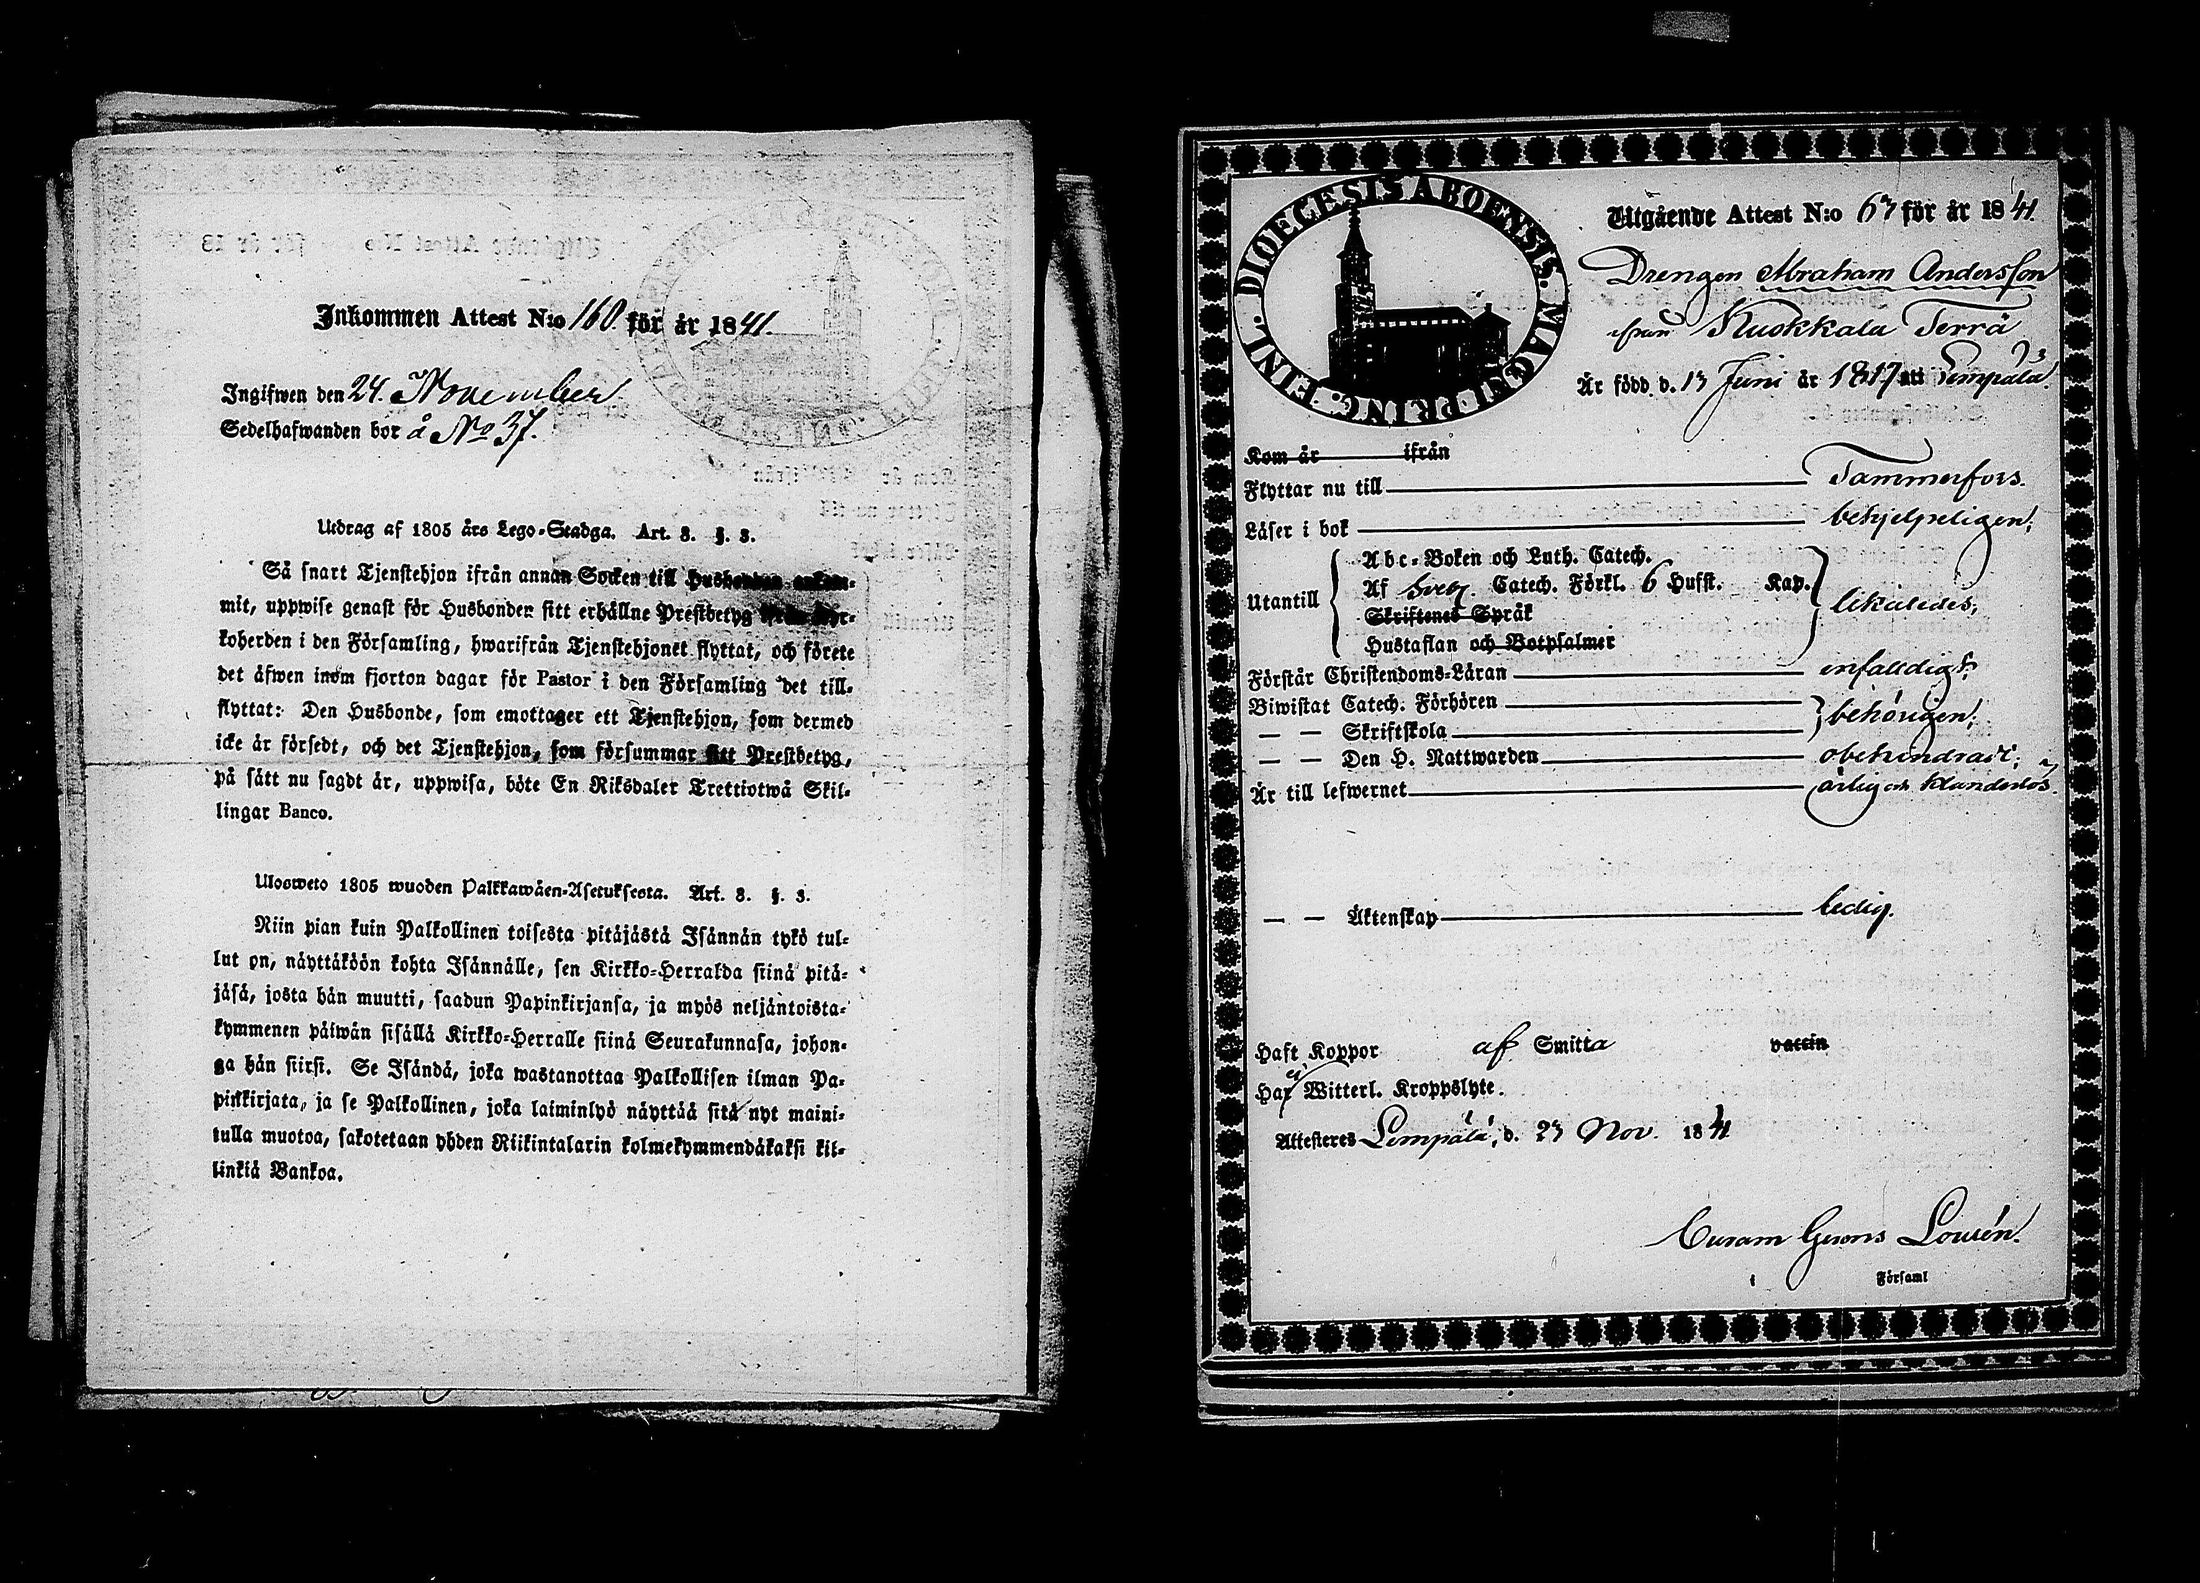 Inkommen Attest N:o 160. för år 1841.
Ingifwen den 24. November.
Sedelhafwanden bor å No 37.
Utdrag af 1805 års Lego-Stadga. Art. 3. §. 3.
Så snart Tjenstehjon ifrån annan Socken till Husbonden ankom-
mit, uppwise genast för Husbonden sitt erhållne Prestbetyg
koherden i den Församling, hwarifrån Tjenstehjonet flyttat, och förete
det äfwen inom fjorton dagar för Pastor i den Församling det till-
flyttat: Den Husbonde, som emottager ett Tjenstehjon, som dermed
icke är försedt, och det Tjenstehjon, som försummar sitt Prestbetyg,
på sätt nu sagdt är, uppwisa, böte En Riksdaler Trettiotwå Skil-
lingar Banco.
Ulosweto 1805 wuoden Palkkawäen-Asetuksesta. Art. 3. §. 3.
Niin pian kuin Palkollinen toisesta pitäjästä Isännän tykö tul-
lut on, näyttäköön kohta Isännälle, sen Kirkko-Herralda siinä pitä-
jäsä, josta hän muutti, saadun Papinkirjansa, ja myös neljäntoista-
kymmenen päiwän sisällä Kirkko-Herralle siinä Seurakunnasa, johon-
ga hän siirsi. Se Isändä, joka wastanottaa Palkollisen ilman Pa-
pinkirjata, ja se Palkollinen, joka laiminlyö näyttää sitä nyt maini-
tulla muotoa, sakotetaan yhden Riikintalarin kolmekymmendäkaksi kil-
linkiä Bankoa.
DIOECESIS ABOENSIS. MAGNI PRINC. FINL.
Utgående Attest N:o 63 för år 1841.
Drengen Abraham Andersson
ifrån Kuokkala Terrä
Är född d. 13 Juni år 1817 att Lempälä.
Kom år ifrån
Flyttar nu till Tammerfors.
Läser i bok behjelpeligen;
Utantill
Abc-Boken och Luth. Catech.
Af Sveb. Catech. Förkl. 6 Hufst. Kap.
Skriftenes Språk
Hustaflan och Botpsalmer
likaledes;
Förstår Christendoms-Läran enfalldigt;
Biwistat Catech. Förhören
— — Skriftskola behörigen;
— — Den H. Nattwarden obehindrad;
Är till lefwernet ärlig och klanderlös.
— — Äktenskap ledig.
Haft Koppor af Smitta vaccin
Har ej Witterl. Kroppslyte.
Attesteras Lempälä, d. 23 Nov. 1841
Curam Gerens Lourén.
i Församl